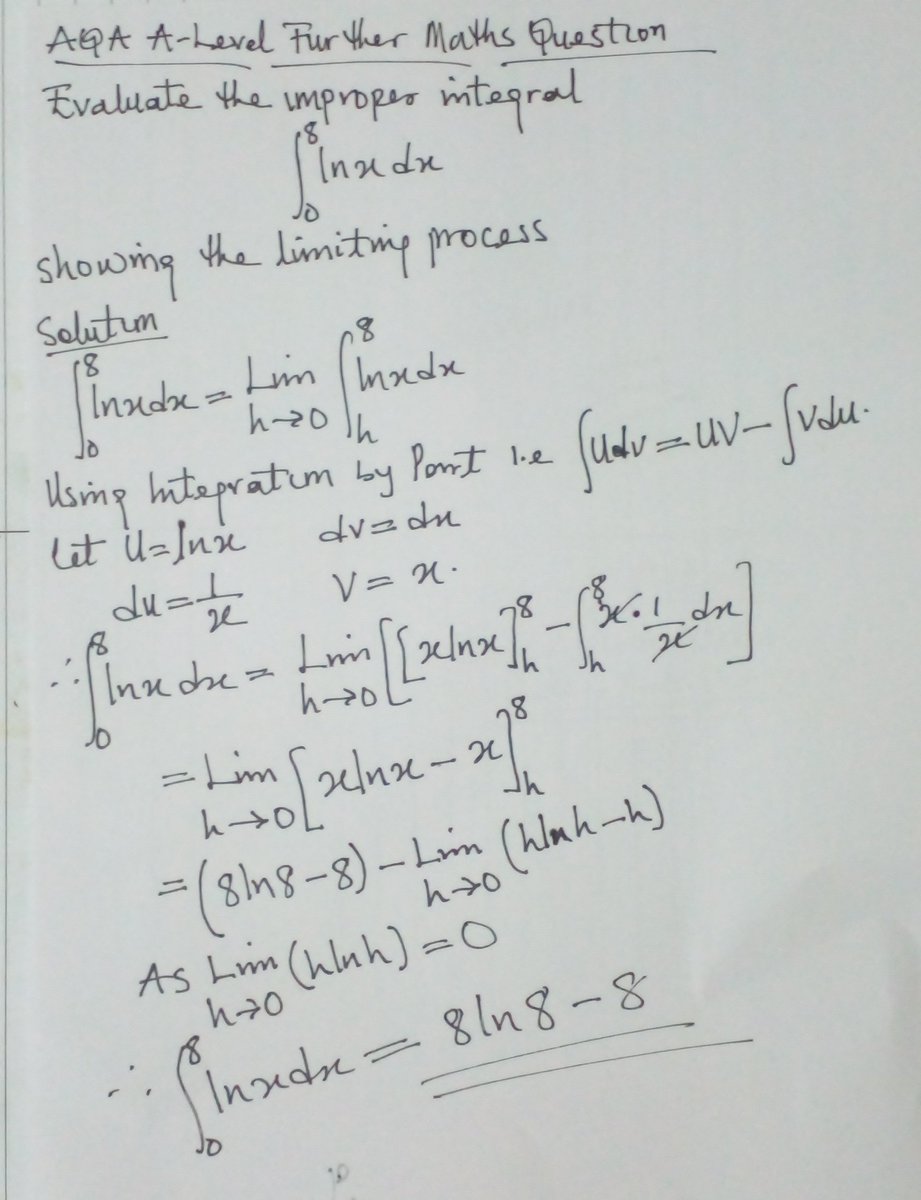 AQA A-Level Further Maths Question
Evaluate the improper integral
∫₀⁸ lnx dx
showing the limiting process
Solution
∫₀⁸ lnxdx = Lim h→0 ∫ₕ⁸ lnxdx
Using Integration by Part i.e ∫udv = uv − ∫vdu.
let U = lnx dv = dx
du = 1/x V = x.
∴ ∫₀⁸ lnx dx = Lim h→0 [[xlnx]ₕ⁸ − ∫ₕ⁸ x·1/x dx]
= Lim h→0 [xlnx − x]ₕ⁸
= (8ln8 − 8) − Lim h→0 (hlnh − h)
As Lim h→0 (hlnh) = 0
∴ ∫₀⁸ lnxdx = 8ln8 − 8